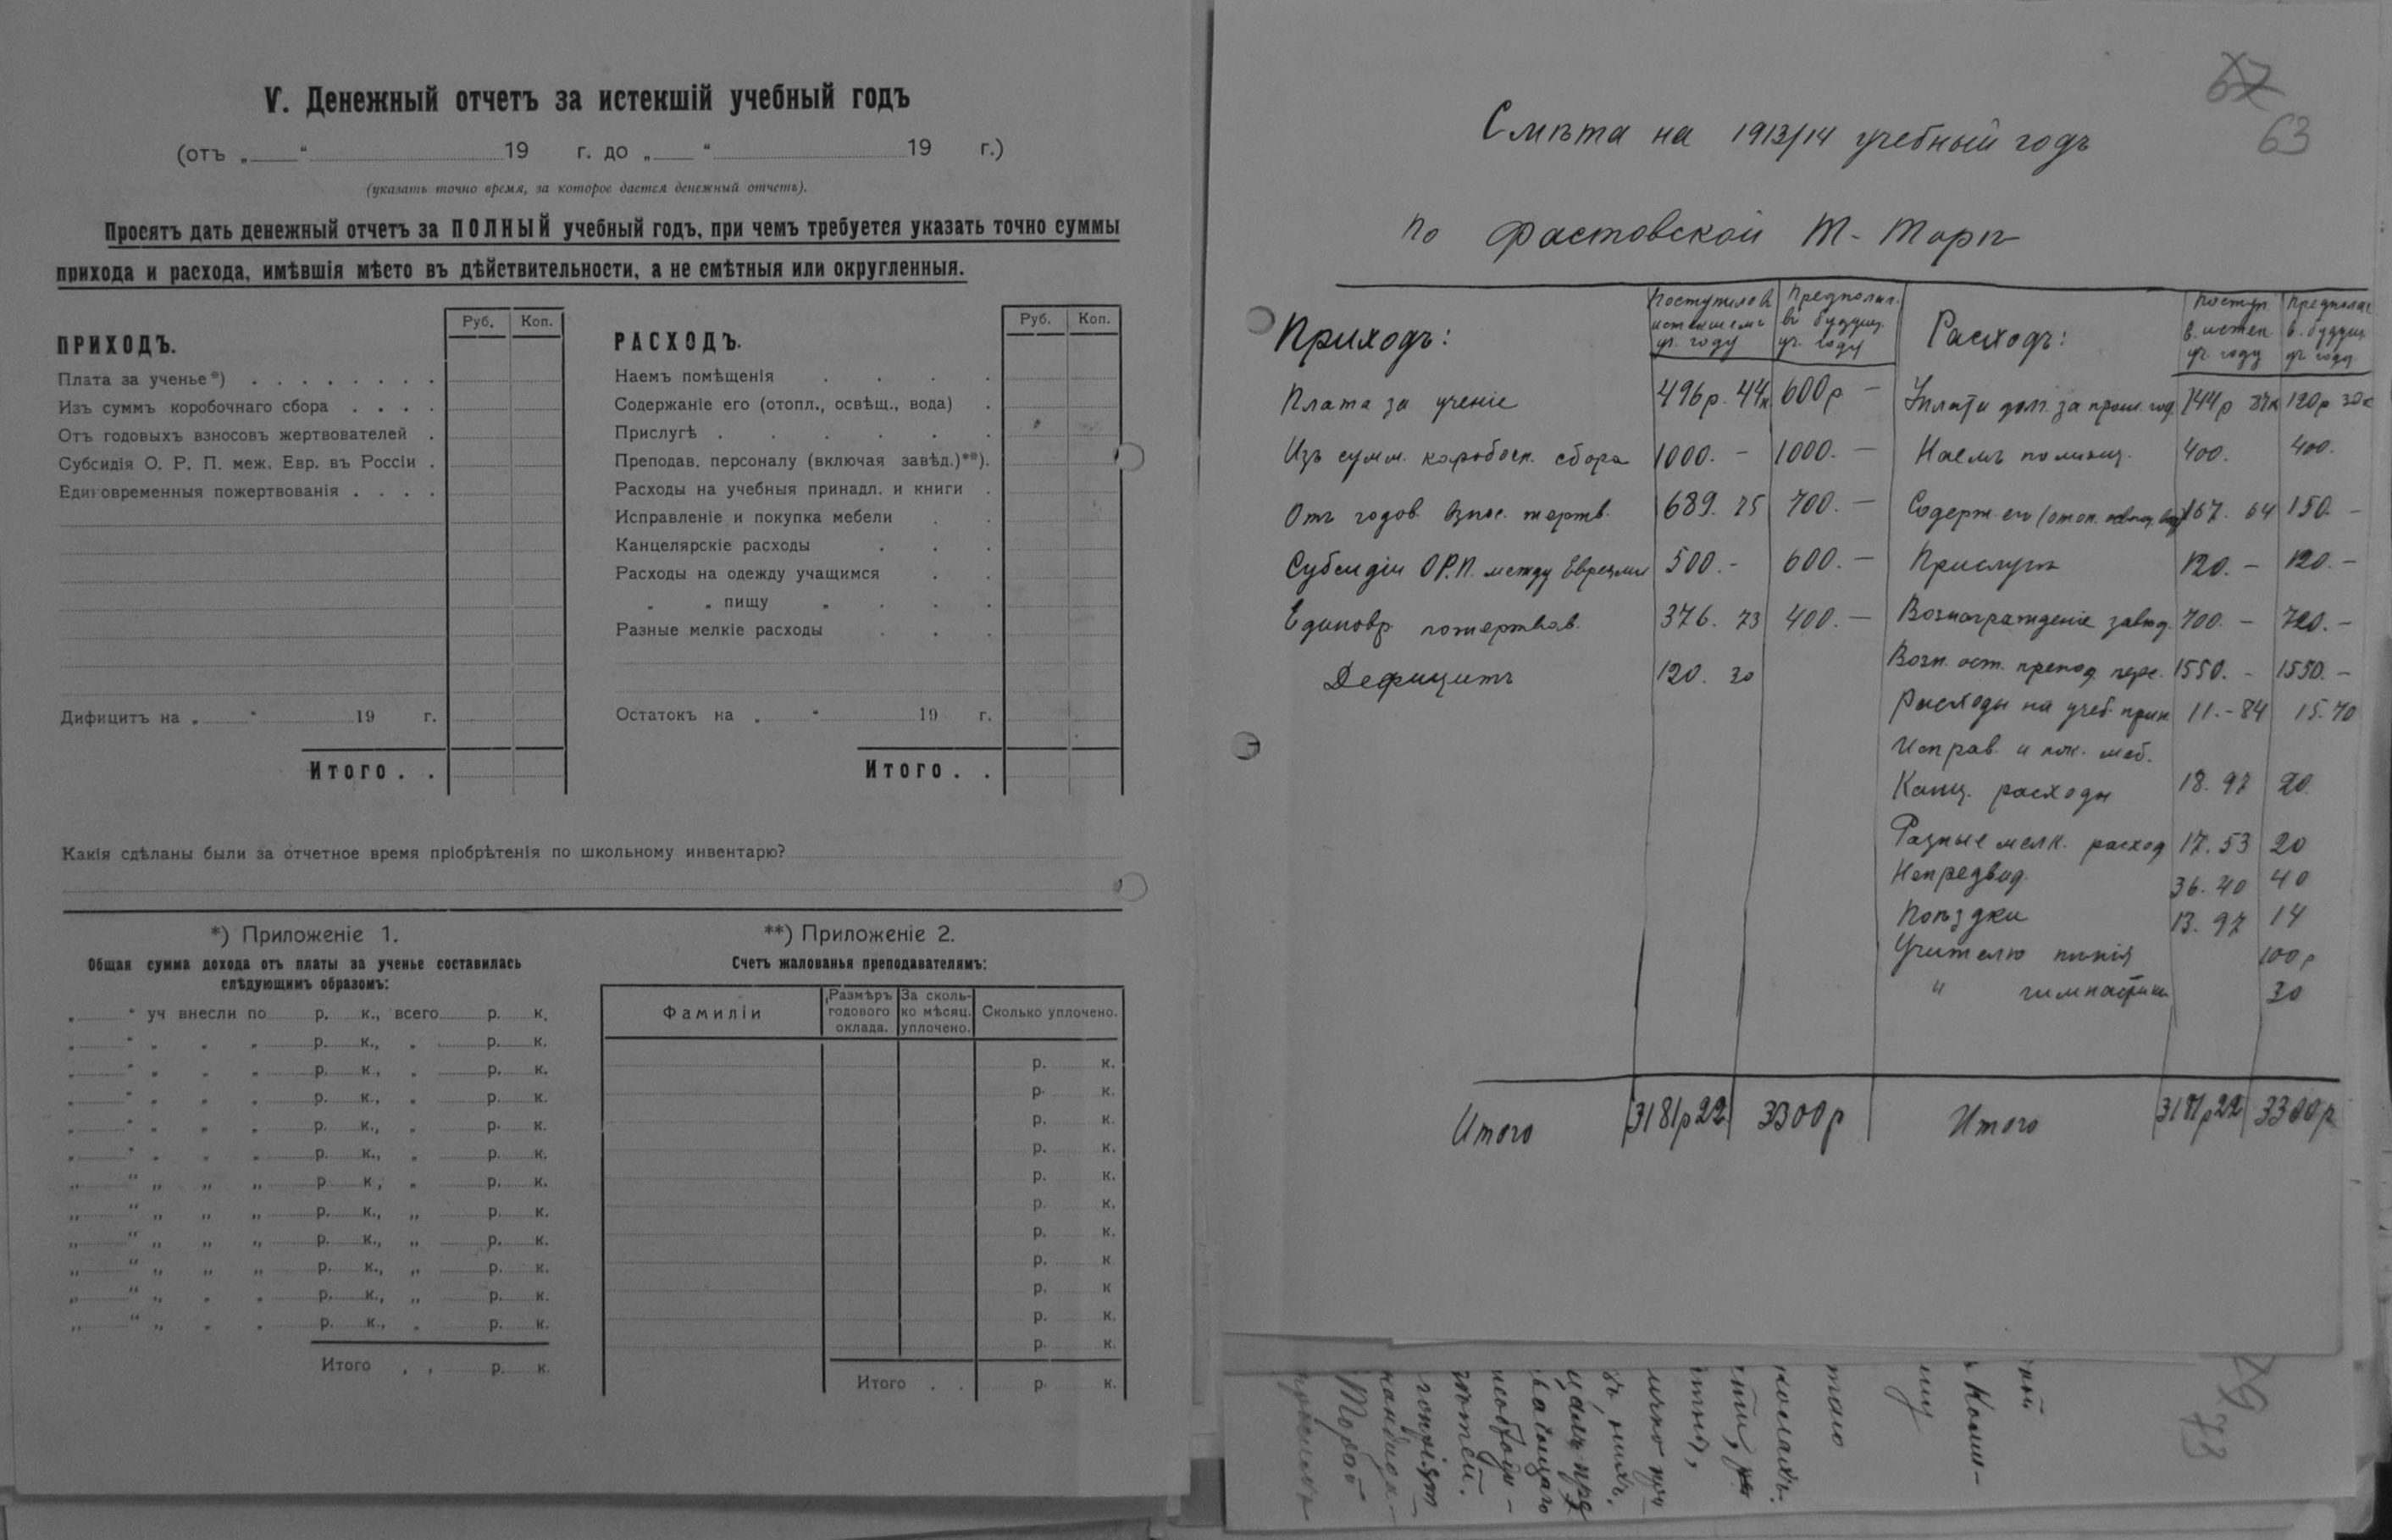 V. Денежный отчетъ за истекшій учебный годъ
(отъ „ “ 19 г. до „ “ 19 г.)
(указать точно время, за которое дается денежный отчетъ).
Просятъ дать денежный отчетъ за ПОЛНЫЙ учебный годъ, при чемъ требуется указать точно суммы
прихода и расхода, имѣвшія мѣсто въ дѣйствительности, а не смѣтныя или округленныя.
ПРИХОДЪ. Руб. Коп.
Плата за ученье*)
Изъ суммъ коробочнаго сбора
Отъ годовыхъ взносовъ жертвователей
Субсидія О. Р. П. меж. Евр. въ Россіи
Единовременныя пожертвованія
Дифицитъ на „ “ 19 г.
Итого . .
РАСХОДЪ. Руб. Коп.
Наемъ помѣщенія
Содержаніе его (отопл., освѣщ., вода)
Прислугѣ
Преподав. персоналу (включая завѣд.)**).
Расходы на учебныя принадл. и книги
Исправленіе и покупка мебели
Канцелярскіе расходы
Расходы на одежду учащимся
„ „ пищу „
Разные мелкіе расходы
Остатокъ на „ “ 19 г.
Итого . .
Какія сдѣланы были за отчетное время пріобрѣтенія по школьному инвентарю?
*) Приложеніе 1.
Общая сумма дохода отъ платы за ученье составилась
слѣдующимъ образомъ:
„ “ уч внесли по р. к., всего р. к.
„ “ „ „ „ р. к., „ р. к.
„ “ „ „ „ р. к., „ р. к.
„ “ „ „ „ р. к., „ р. к.
„ “ „ „ „ р. к., „ р. к.
„ “ „ „ „ р. к., „ р. к.
„ “ „ „ „ р к, „ р. к.
„ “ „ „ „ р. к., „ р. к.
„ “ „ „ „ р. к., „ р. к.
„ “ „ „ „ р. к., „ р. к.
„ “ „ „ „ р. к., „ р. к.
„ “ „ „ „ р. к., „ р. к.
Итого . . р. к.
**) Приложеніе 2.
Счетъ жалованья преподавателямъ:
Фамиліи
Размѣръ годового оклада.
За сколько мѣсяц. уплочено.
Сколько уплочено.
р. к.
р. к.
р. к.
р. к.
р. к.
р. к.
р. к.
р. к
р. к
р. к.
р. к.
Итого . . р. к.
67
63
Смѣта на 1913/14 учебный годъ
по Фастовской Т-Торѣ
Приходъ:
Поступило въ истекшемъ уч. году
Предполаг. въ будущ. уч. году
Плата за ученіе 496р. 44к 600р –
Изъ сумм. коробочн. сбора 1000. – 1000. –
Отъ годов. взнос. жертв. 689. 75 700. –
Субсидіи О.Р.П. между Евреями 500. – 600. –
Единовр. пожертвов. 376. 73 400. –
Дефицитъ 120. 30
Расходъ:
Поступ. в. истек. уч. году
Предполаг. в. будущ. уч. году
Уплата долг. за прош. год 144р 87к 120р 30к
Наемъ помѣщ. 400. 400.
Содерж. его (отоп. освѣщ. вод) 167. 64 150. –
Прислугѣ 120. – 120. –
Вознагражденіе завѣд. 700. – 720. –
Возн. ост. препод. перс. 1550. – 1550. –
Расходы на учеб. прин. 11. – 84 15. 70
Исправ. и пок. меб.
Канц. расходы 18. 97 20.
Разные мелк. расход 17. 53 20
Непредвид. 36. 40 40
Поѣздки 13. 97 14
Учителю пѣнія 100р
" гимнастики 30
Итого 3181р 22 3300р
Итого 3181р 22 3300р
73